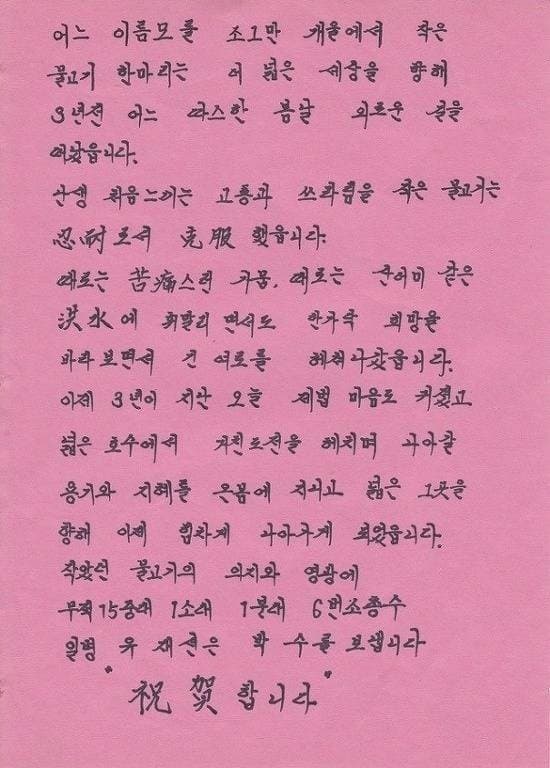 어느 이름모를 조그만 개울에서 작은
물고기 한마리는 더 넓은 세상을 향해
3년전 어느 따스한 봄날 외로운 길을
떠났읍니다.
난생 처음느끼는 고통과 쓰라림을 작은 물고기는
忍耐로서 克服했읍니다.
때로는 苦痛스런 가뭄, 때로는 산더미 같은
洪水에 휘말리면서도 한가닥 희망을
바라보면서 긴 여로를 헤쳐나갔읍니다.
이제 3년이 지난 오늘 제법 마음도 커졌고
넓은 호수에서 거친도전을 헤치며 나아갈
용기와 지혜를 온몸에 지니고 넓은 그곳을
향해 이제 힘차게 나아가게 되었읍니다.
작았던 물고기의 의지와 영광에
무적15중대 1소대 1분대 6번조총수
일병 유재선은 박수를 보냅니다
"祝賀합니다"